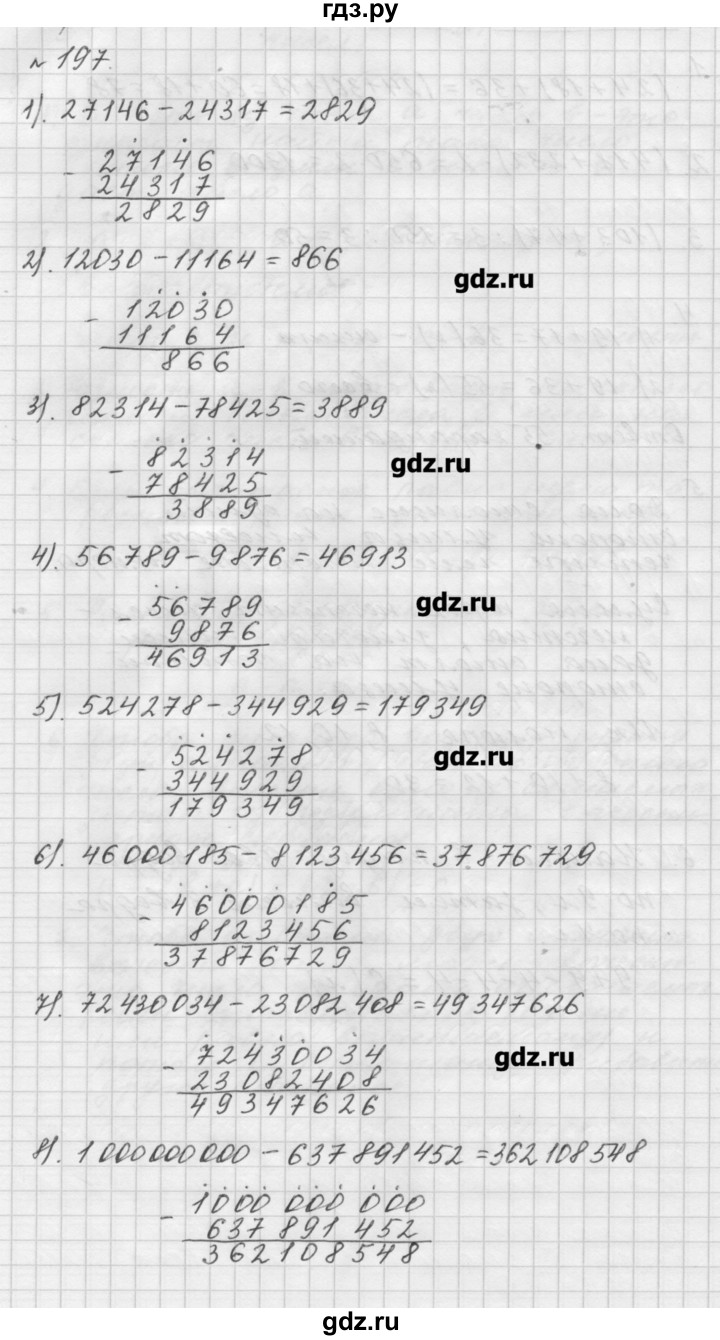 гдз.ру
№ 197.
1). 27146 - 24317 = 2829
- 27146
24317
2829
2). 12030 - 11164 = 866
gdz.ru
- 12030
11164
866
3). 82314 - 78425 = 3889
- 82314
gdz.ru
78425
3889
4). 56789 - 9876 = 46913
- 56789
gdz.ru
9876
46913
5). 524278 - 344929 = 179349
- 524278
gdz.ru
344929
179349
6). 46000185 - 8123456 = 37876729
- 46000185
8123456
37876729
7). 72430034 - 23082408 = 49347626
- 72430034
gdz.ru
23082408
49347626
8). 1000000000 - 637891452 = 362108548
- 1000 000 000
637 891 452
362108548
gdz.ru